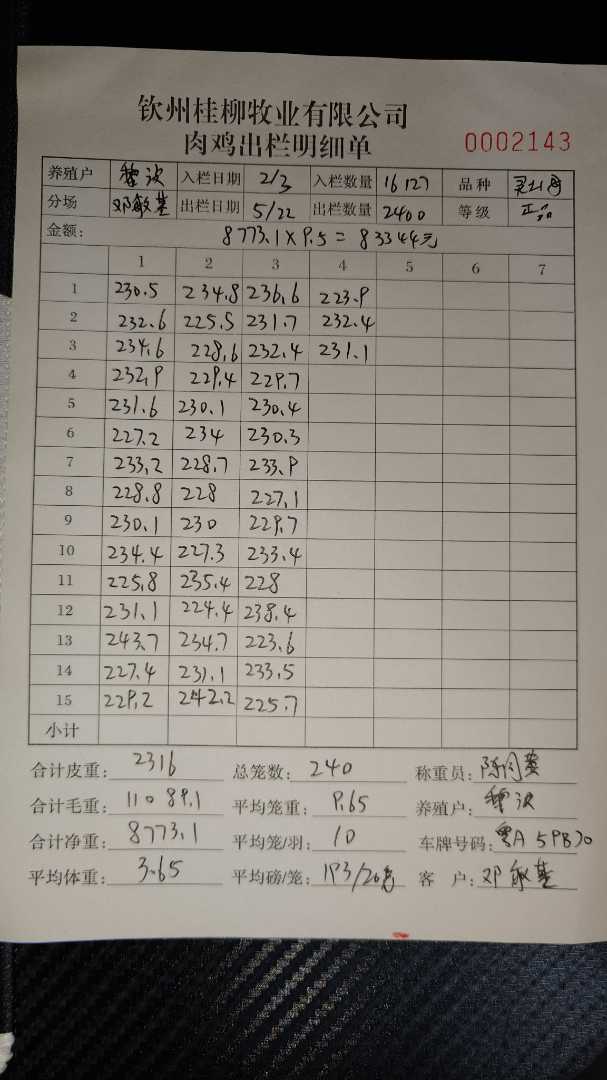 钦州桂柳牧业有限公司
肉鸡出栏明细单 0002143
养殖户 入栏日期 2/3 入栏数量 16127 品种
分场 邓敏基 出栏日期 5/22 出栏数量 2400 等级 正品
金额: 8773.1×9.5=83344元
1 2 3 4 5 6 7
1 230.5 234.8 236.6 223.9
2 232.6 225.5 231.7 232.4
3 234.6 228.6 232.4 231.1
4 232.9 229.4 229.7
5 231.6 230.1 230.4
6 227.2 234 230.3
7 233.2 228.7 233.9
8 228.8 228 227.1
9 230.1 230 229.7
10 234.4 227.3 233.4
11 225.8 235.4 228
12 231.1 224.4 238.4
13 243.7 234.7 223.6
14 227.4 231.1 233.5
15 229.2 242.2 225.7
小计
合计皮重: 2316 总笼数: 240 称重员:
合计毛重: 11089.1 平均笼重: 9.65 养殖户:
合计净重: 8773.1 平均笼/羽: 10 车牌号码: 粤A 59B30
平均体重: 3.65 平均磅/笼: 193/20 客户: 邓敏基